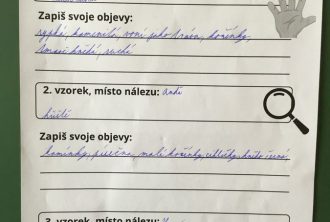 Zapiš svoje objevy:
sypká, kamenitá, voní jako tráva, kořínky,
tmavě hnědá, suchá
2. vzorek, místo nálezu:
hřiště
Zapiš svoje objevy:
kamínky, písečná, malé kořínky,
3. vzorek, místo nálezu: